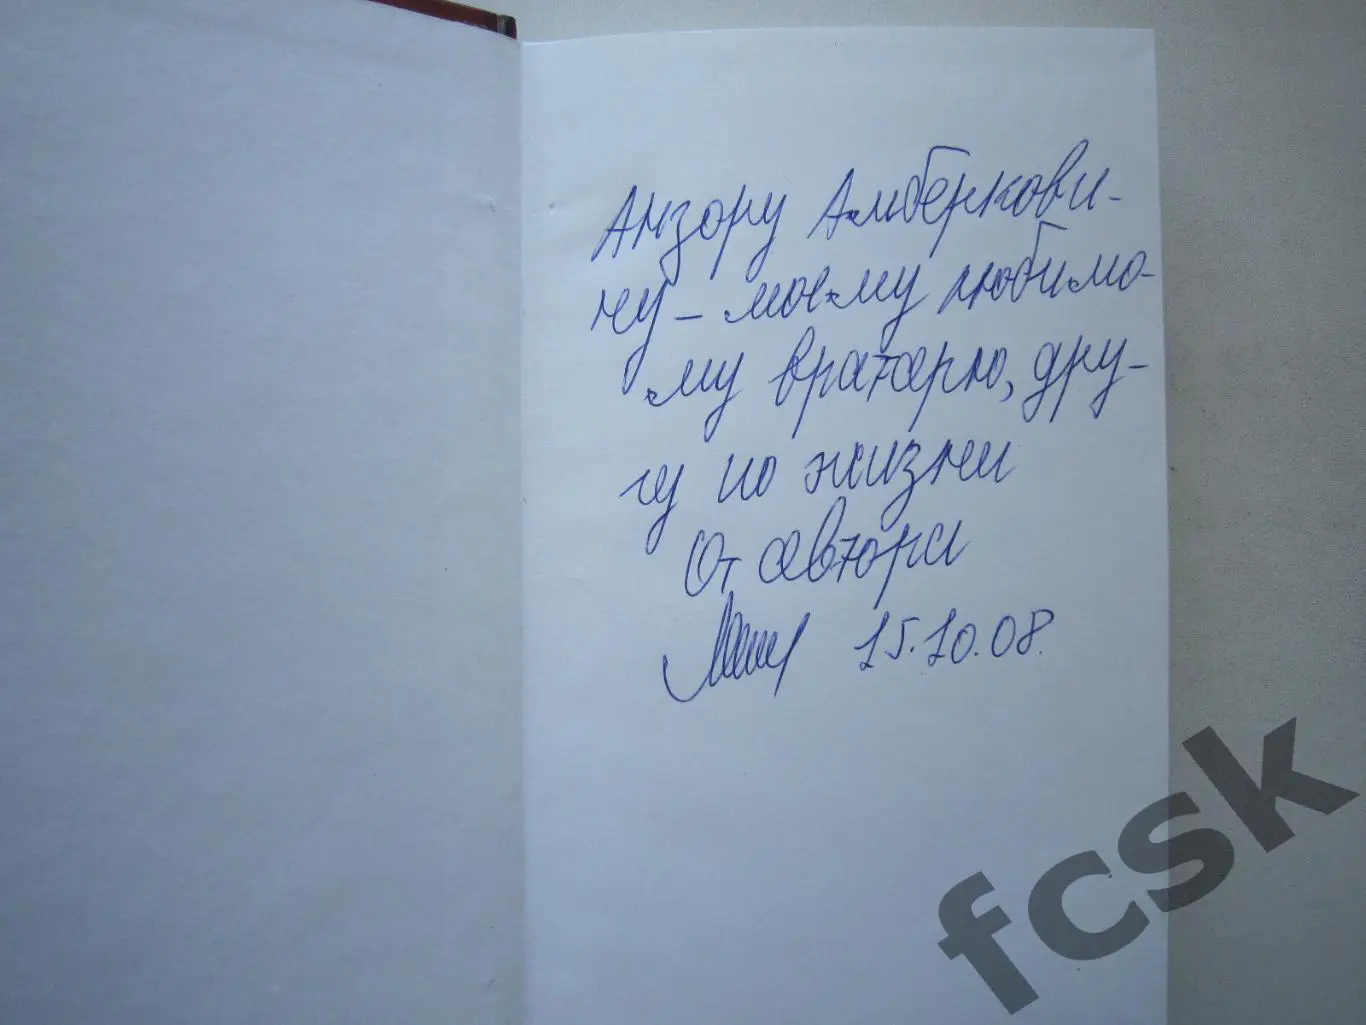 Анзору Амберкови-
чу - моему любимо-
му вратарю, дру-
гу по жизни
От автора
15.10.08.
fcsk